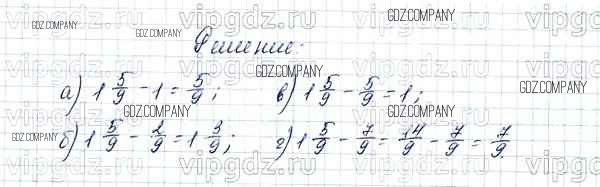 GDZ.COMPANY
GDZ.COMPANY
GDZ.COMPANY
Решение:
а) 1 5/9 - 1 = 5/9; в) 1 5/9 - 5/9 = 1;
GDZ.COMPANY
GDZ.COMPANY
GDZ.COMPANY
GDZ.COMPANY
GDZ.COMPANY
б) 1 5/9 - 2/9 = 1 3/9; г) 1 5/9 - 7/9 = 14/9 - 7/9 = 7/9.
vipgdz.ru
vipgdz.ru
vipgdz.ru